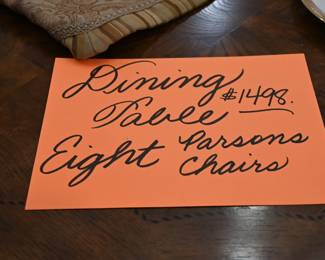 Dining
Table $1498.
Eight Parsons
Chairs